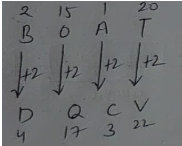 2 15 1 20
B O A T
+2 +2 +2 +2
D Q C V
4 17 3 22